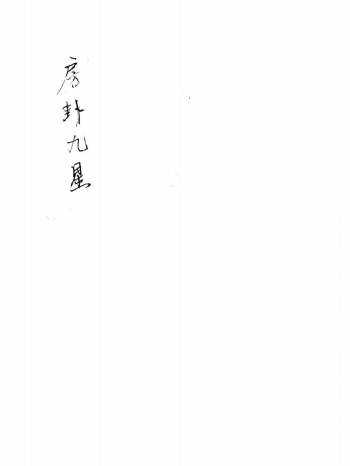 房卦九星